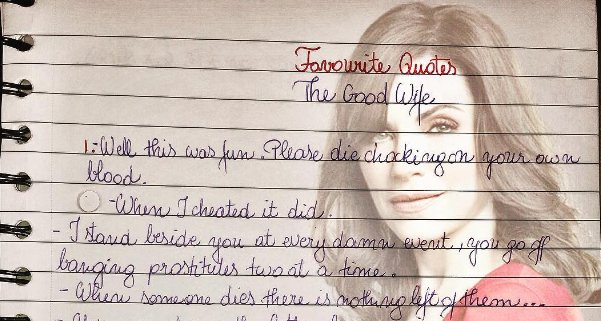 Favourite Quotes
The Good Wife
1:- Well this was fun. Please die chocking on your own
blood.
- When I cheated it did.
- I stand beside you at every damn event, you go off
banging prostitutes two at a time.
- When someone dies there is nothing left of them...